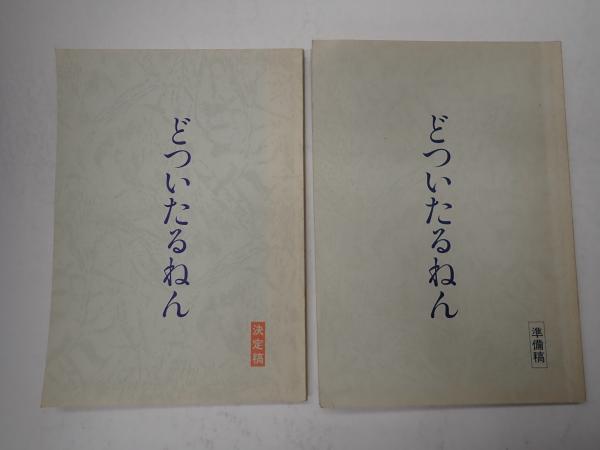 どついたるねん
決定稿
どついたるねん
準備稿